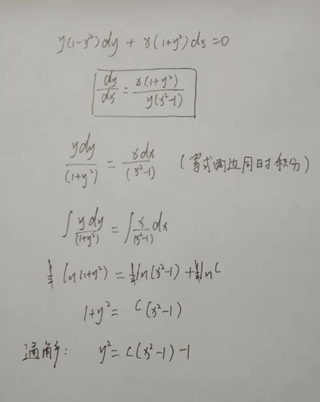 y(1-x²)dy + x(1+y²)dx=0
dy/dx = x(1+y²)/y(x²-1)
ydy/(1+y²) = xdx/(x²-1) (等式两边同时积分)
∫ydy/(1+y²) = ∫x/(x²-1) dx
½ln(1+y²) = ½ln(x²-1) + ½lnC
1+y² = C(x²-1)
通解为: y² = C(x²-1) -1